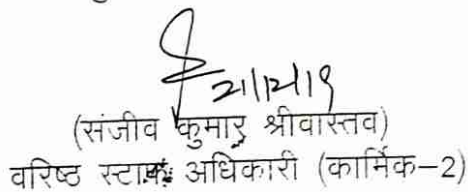 21/12/19
(संजीव कुमार श्रीवास्तव)
वरिष्ठ स्टाफ अधिकारी (कार्मिक-2)